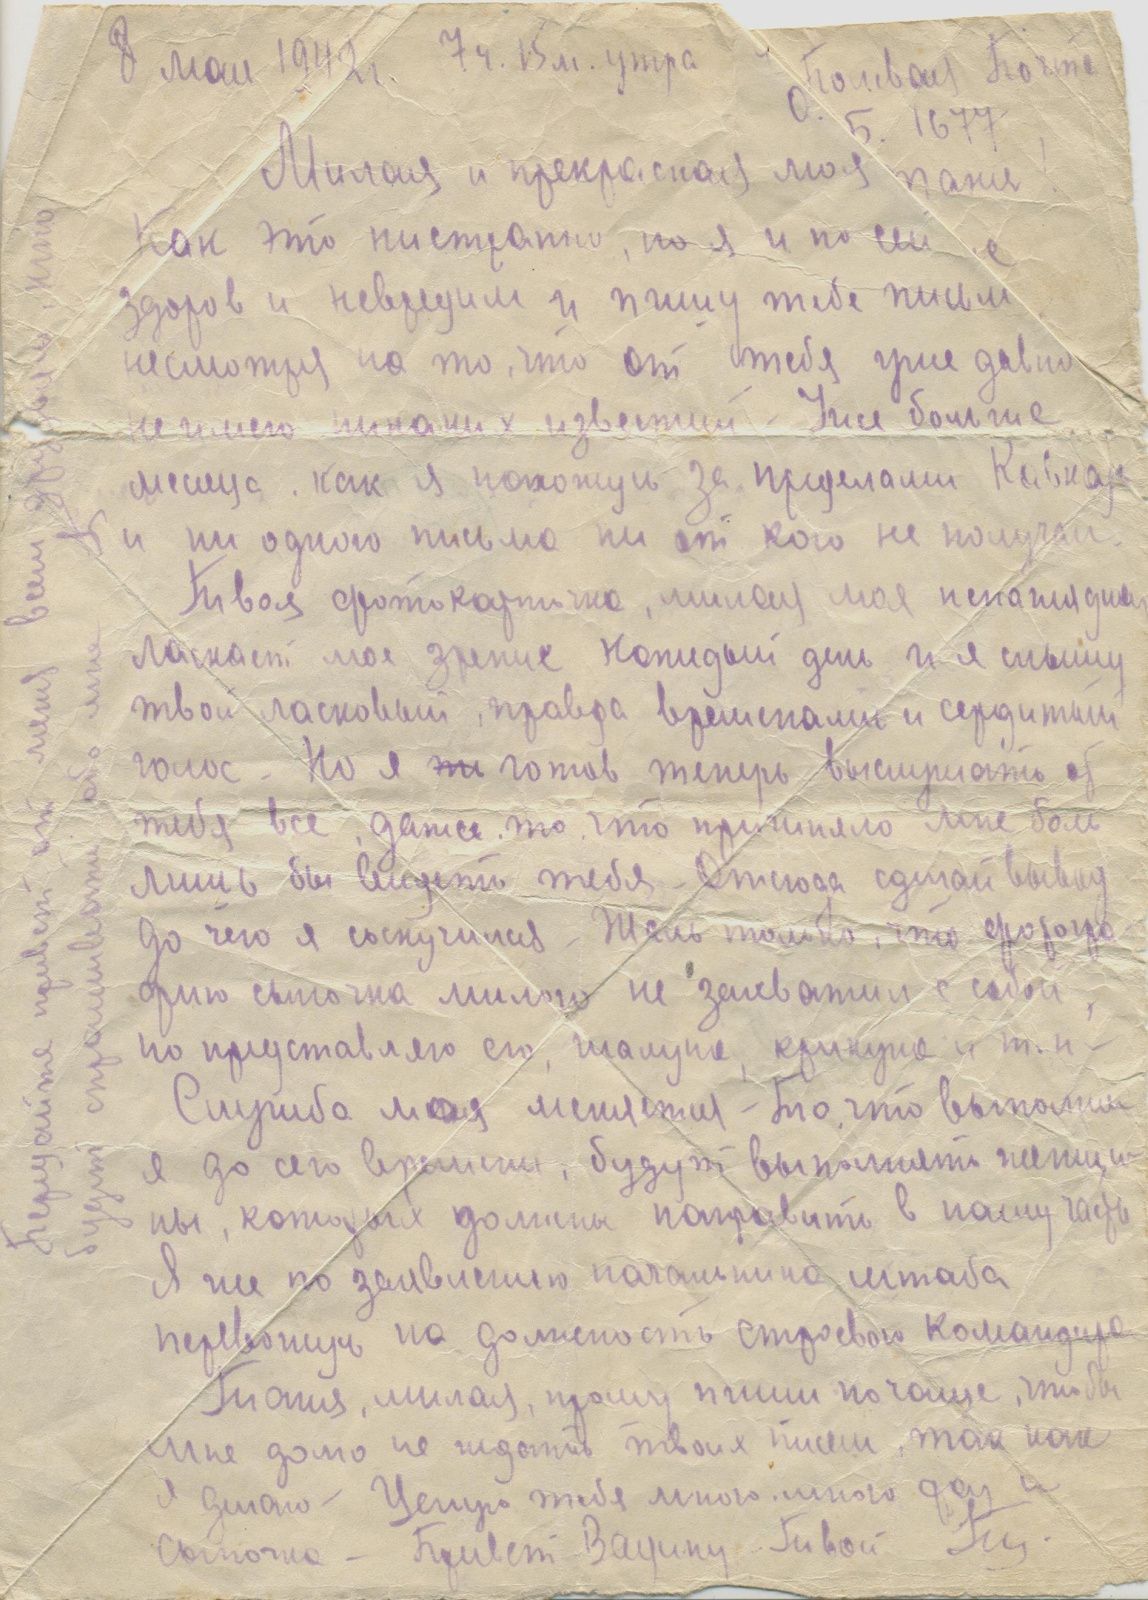 8 мая 1942 г. 7 ч. 15 м. утра
Полевая Почта
О. Б. 1677
Милая и прекрасная моя Таня!
Как это ни странно, но я и по сей
здоров и невредим и пишу тебе письм
несмотря на то, что от тебя уже давно
не имею никаких известий. Уже больше
месяца, как я нахожусь за пределами Кавказа
и ни одного письма ни от кого не получал.
Твоя фотокарточка, милая моя ненаглядная
ласкает мое зрение каждый день и я слышу
твой ласковый, правда временами и сердитый
голос - Но я готов теперь выслушать от
тебя все, даже то, что причиняло мне боль
лишь бы видеть тебя - Отсюда сделай вывод
до чего я соскучился - Жаль только, что фотогра-
фию сыночка милого не захватил с собой,
но представляю его, шалуна, крикуна и т.п -
Служба моя меняется - То, что выполнял
я до сего времени, будут выполнять женщи-
ны, которых должны направить в нашу часть
Я же по заявлению начальника штаба
перевожусь на должность строевого командира
Таня, милая, прошу пиши почаще, чтобы
мне долго не ждать твоих писем, так как
я делаю - Целую тебя много-много раз и
сыночка - Привет Твой
Передайте привет от меня всем друзьям, кто
будет спрашивать обо мне